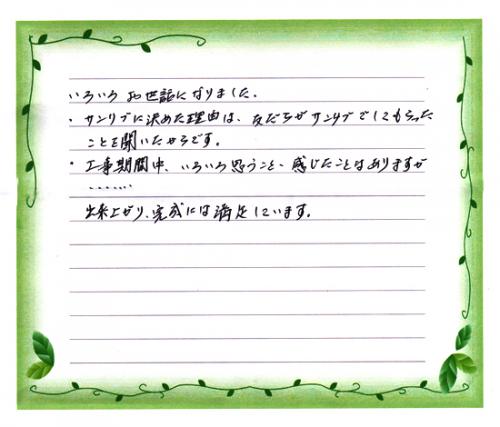 いろいろお世話になりました。
・サンリブに決めた理由は、友だちがサンリブでしてもらった
ことを聞いたからです。
・工事期間中、いろいろ思うこと、感じたことはありますが
………
出来上がり、完成には満足しています。